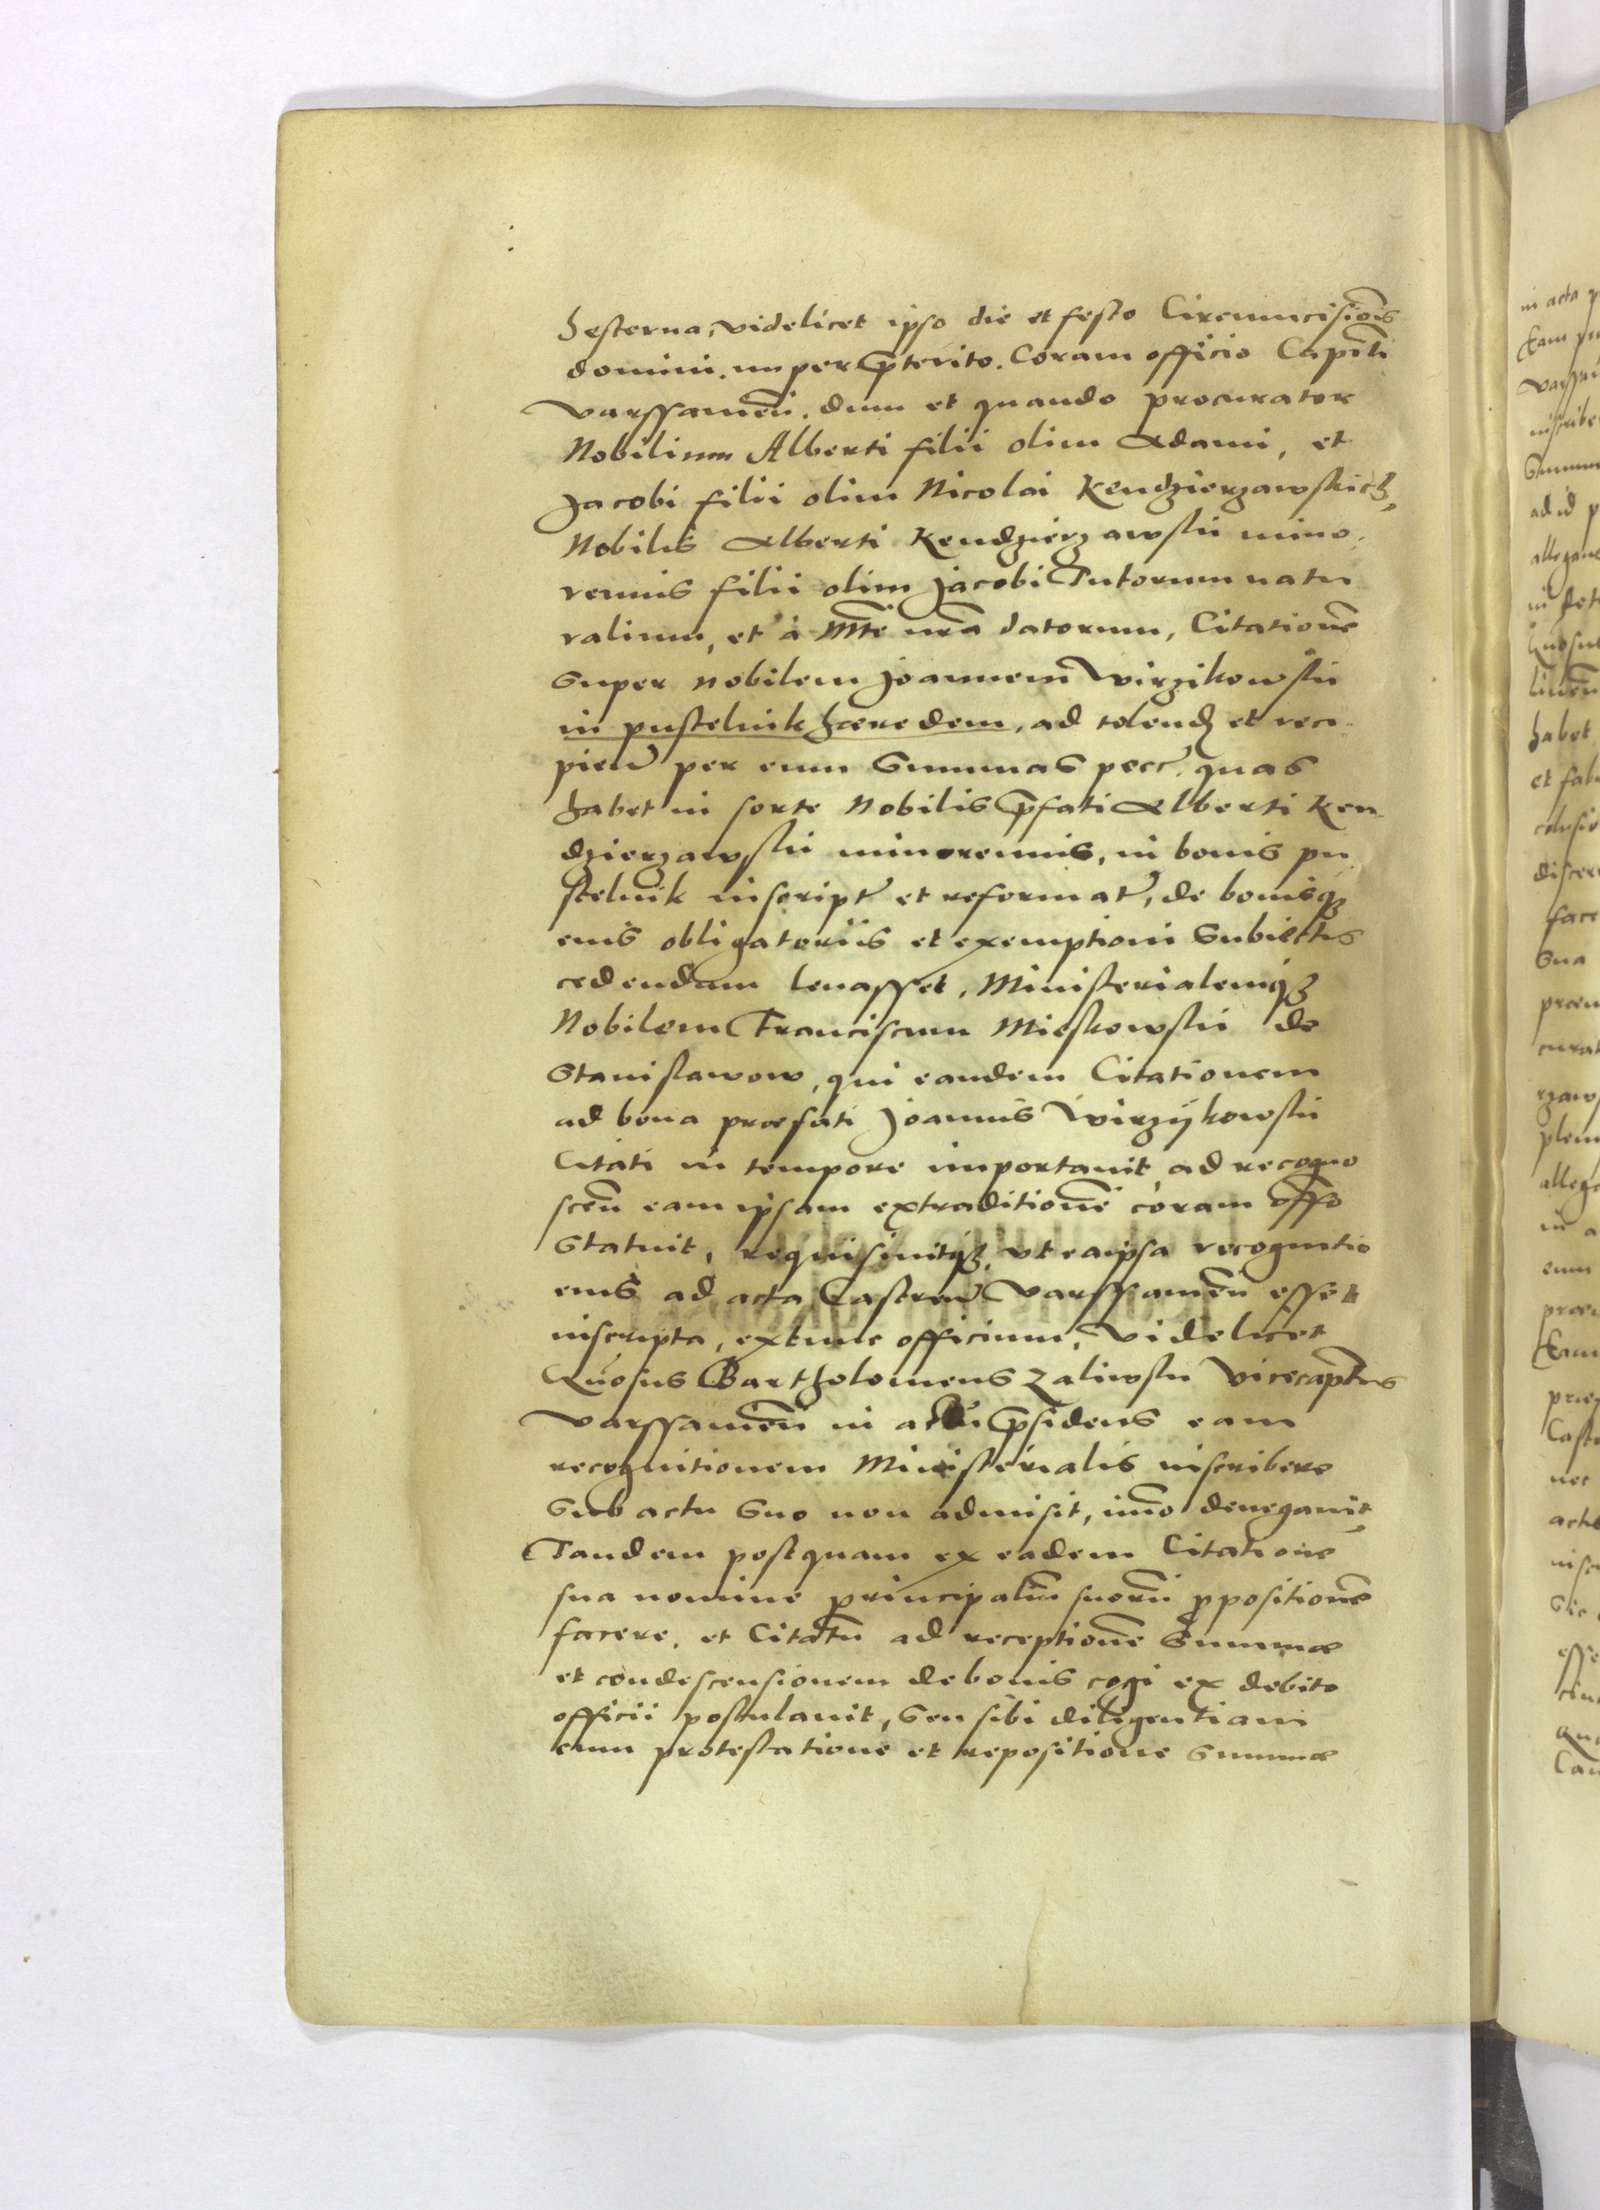 hesterna, videlicet ipso die et festo Circumcisionis
domini. nuper p̄terito. Coram officio Capit̄li
Varssauien̄. dum et quando procurator
Nobilium Alberti filii olim Adami, et
Jacobi filii olim Nicolai Kendzierzawskich,
Nobilis Alberti Kendzierzawskii mino,
rennis filii olim Jacobi Tutorum natu
ralium, et à Mt̄e nr̄a datorum, Citationē
Super Nobilem Joannem Wirzikowskii
in pustelnik hæredem, ad tolend et reci-
piend per eum Summas pecc̄. quas
habet in sorte Nobilis p̄fati Alberti Ken-
dzierzawskii minorennis, in bonis pu
stelnik inscript et reformat, de bonisq3
eius obligatoriis et exemptioni Subiectis
cedendam leuasset, Ministerialemq3
Nobilem Franciscum Mieskowskii de
Stanislawow, qui eandem Citationem
ad bona præfati Joannis Wirzÿkowskii
Citati in tempore importauit, ad recogno
scen̄ eam ipsam extraditionē coram off̄o
Statuit, requisiuitq3, vt eaipsa recognitio
eius ad acta Castren̄ Varssauien̄ esset
inscripta, extunc officium, Videlicet
Gn̄osus Bartholomeus Zaliwskii Vicecapt̄us
Varssauien̄ in actu p̄sidens eam
recognitionem Ministerialis inscribere
Sub actu Suo non admisit, im̄o denegauit
Tandem postquam ex eadem Citatione
sua nomine principaliū suorū ppositionē
facere, et Citatū ad receptionē Summæ
et condescensionem de bonis cogi ex debito
officii postulauit, Seu sibi diligentiam
cum protestatione et repositione Summæ